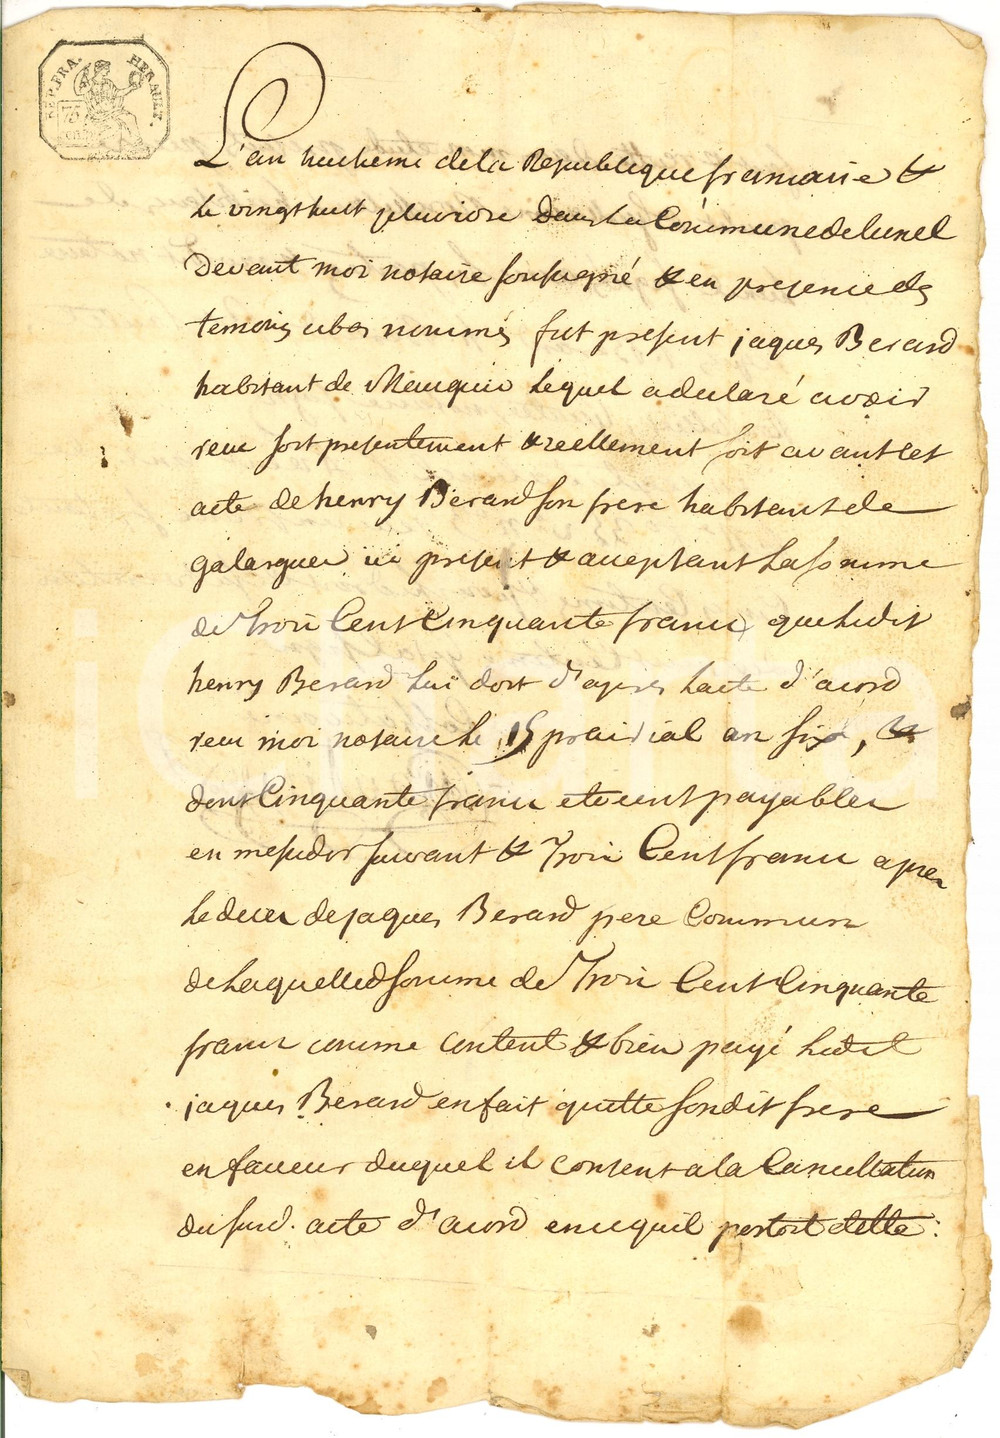 REP. FRA. HERAULT.
75
cen
L'an huitieme de la Republique francaise &
le vingt huit pluviose Dans la Commune de lunel
Devant moi notaire soussigné & en presence des
temoins ubas nommés fut present jaques Berard
habitant de Mauguio lequel a declaré avoir
recu soit presentement & reellement soit avant cet
acte de henry Berard son frere habitant de
galargues ici present & acceptant la somme
de Trois Cent Cinquante francs que ledit
henry Berard lui doit d'apres lacte d'acord
recu moi notaire le 15 prairial an six, &
dont Cinquante francs etoient payables
en messidor suivant & Trois Cent francs apres
le deces de jaques Berard pere Commun
de laquelle d somme de Trois Cent Cinquante
francs comme content & bien payé ledit
jaques Berard en fait quitte sondit frere
en faveur duquel il consent a la Cancellation
du susd. acte d'acord en ce quil portoit dette